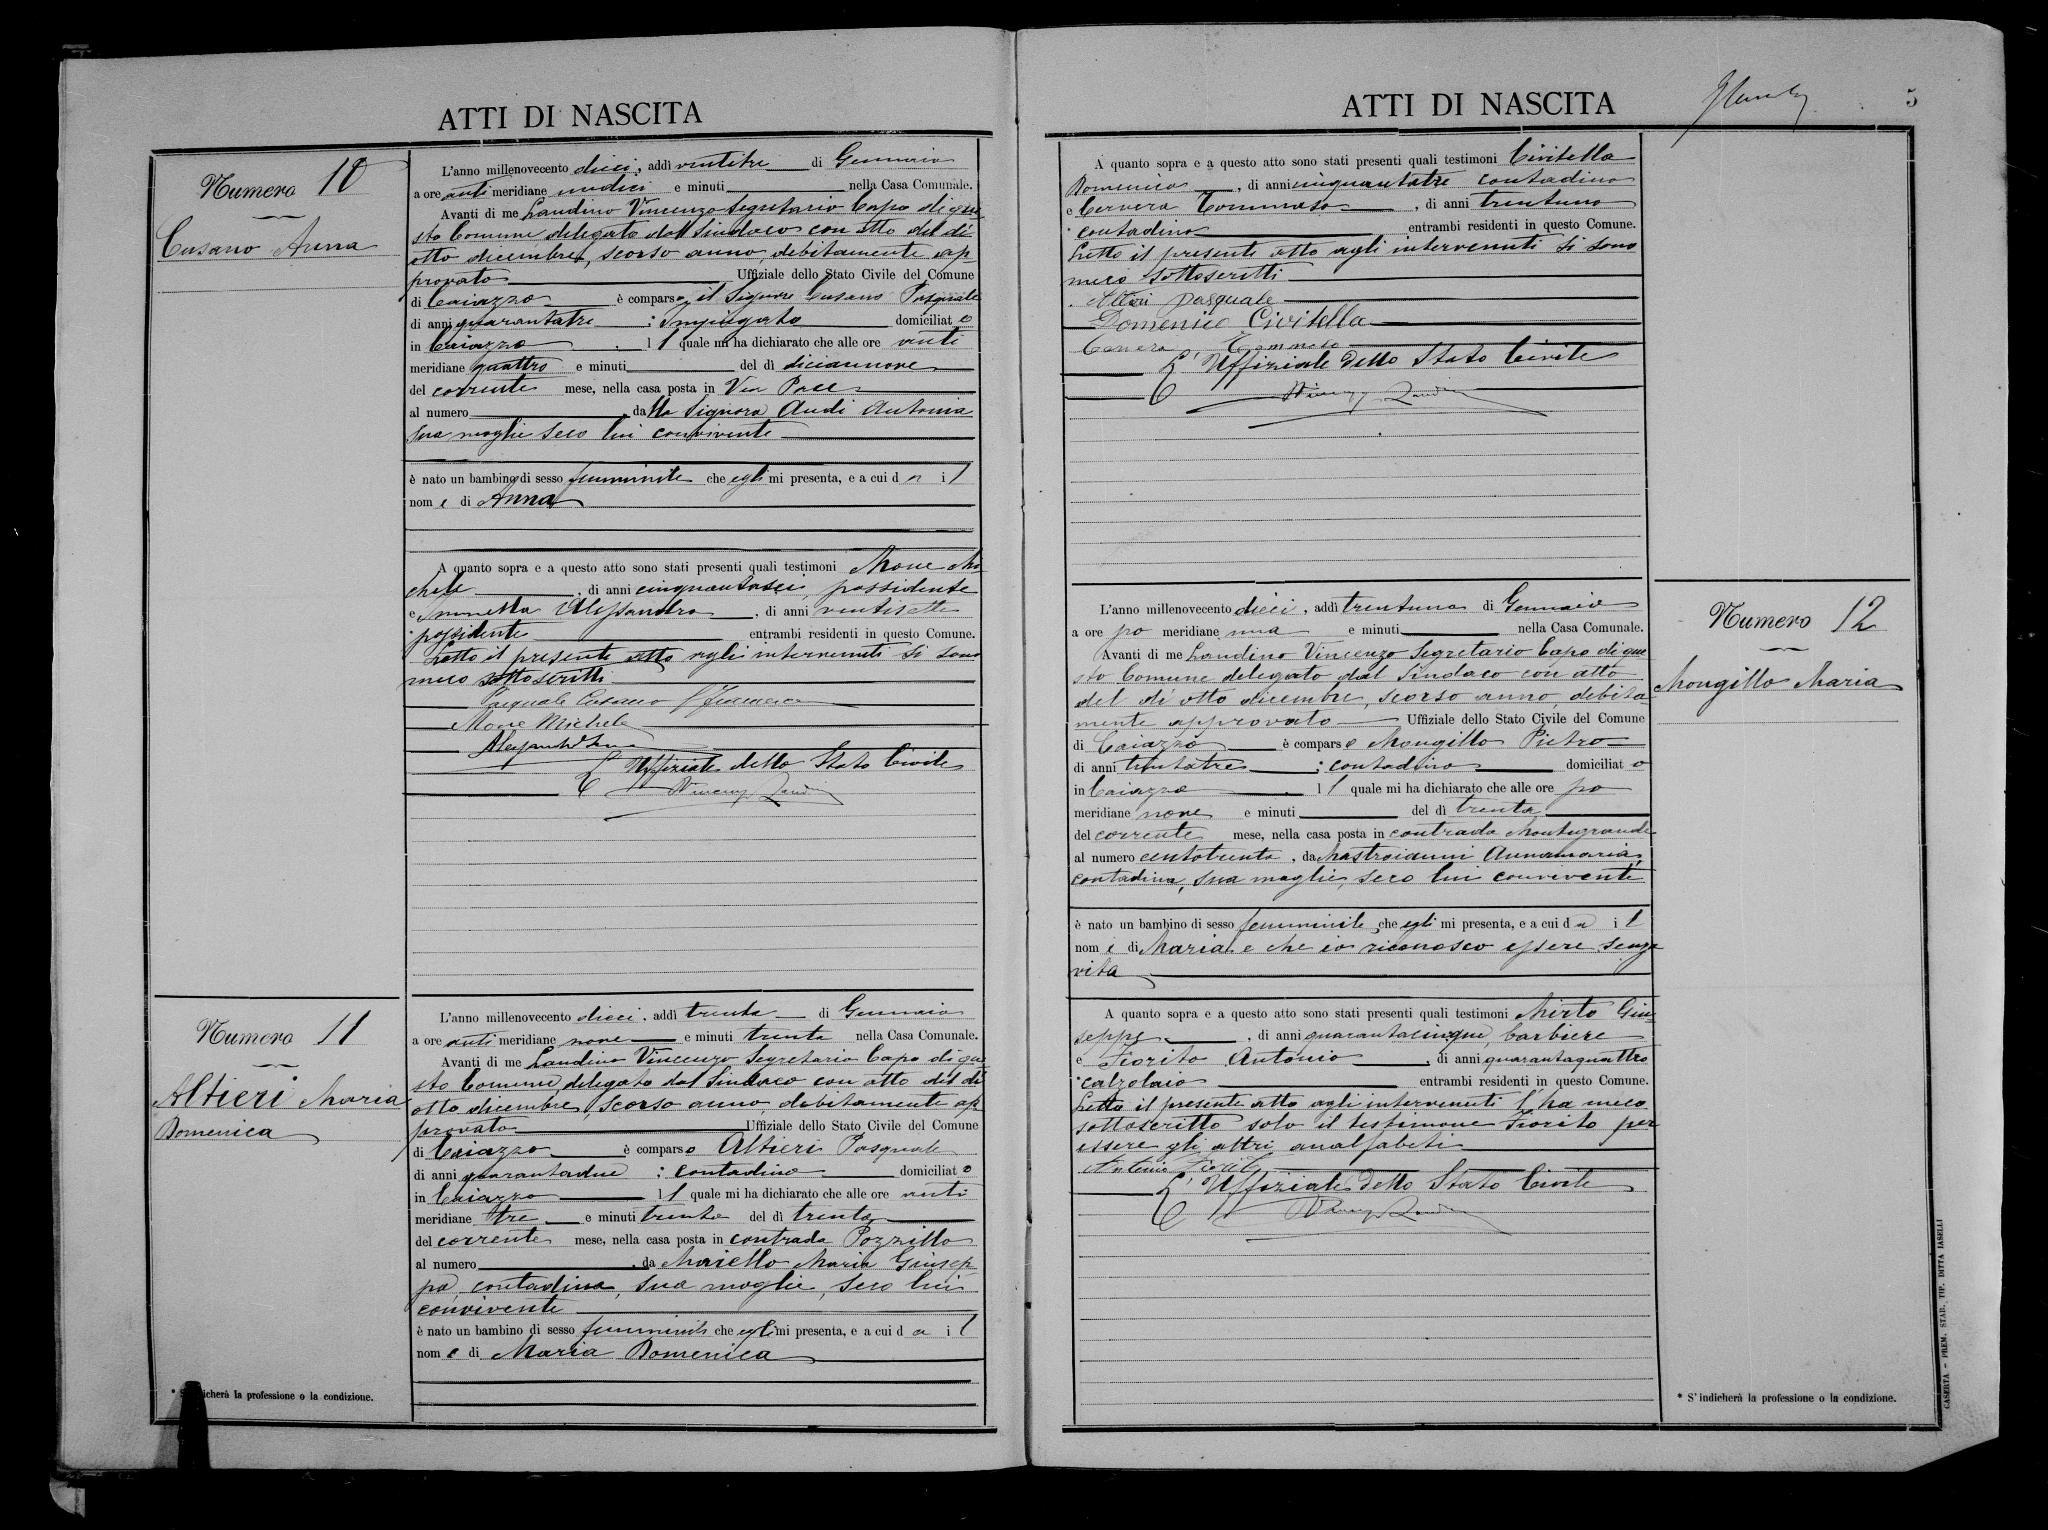 ATTI DI NASCITA
Numero 10
Cusano Anna
L'anno millenovecento dieci, addì ventitre di Gennaio
a ore anti meridiane undici e minuti nella Casa Comunale.
Avanti di me Landino Vincenzo Segretario Capo di que
sto Comune delegato dal Sindaco con atto del dì
otto dicembre, scorso anno, debitamente ap
provato Uffiziale dello Stato Civile del Comune
di Caiazzo è comparso il Signore Cusano Pasquale
di anni quarantatre ; Impiegato domiciliato
in Caiazzo . l l quale mi ha dichiarato che alle ore anti
meridiane quattro e minuti del dì diciannove
del corrente mese, nella casa posta in Via Pace
al numero , dalla Signora Audi Antonia
sua moglie seco lui convivente
è nato un bambino di sesso femminile che egli mi presenta, e a cui d a i l
nom e di Anna
A quanto sopra e a questo atto sono stati presenti quali testimoni Mone Mi
chele , di anni cinquantasei, possidente
e Alessandro , di anni ventisette
* possidente entrambi residenti in questo Comune.
Letto il presente atto agli intervenuti si sono
meco sottoscritti
Pasquale Cusano
Mone Michele
L'Uffiziale dello Stato Civile
Numero 11
Altieri Maria
Domenica
L'anno millenovecento dieci, addì trenta di Gennaio
a ore anti meridiane nove e minuti trenta nella Casa Comunale.
Avanti di me Landino Vincenzo Segretario Capo di que
sto Comune, delegato dal Sindaco con atto del dì
otto dicembre, scorso anno, debitamente ap
provato Uffiziale dello Stato Civile del Comune
di Caiazzo è comparso Altieri Pasquale
di anni quarantadue ; contadino domiciliato
in Caiazzo l l quale mi ha dichiarato che alle ore anti
meridiane tre e minuti trenta del dì trenta
del corrente mese, nella casa posta in contrada Pozzillo
al numero , da Maiello Maria Giusep
pa, contadina, sua moglie, seco lui
convivente
è nato un bambino di sesso femminile che egli mi presenta, e a cui d a i l
nom e di Maria Domenica
* S'indicherà la professione o la condizione.
ATTI DI NASCITA
5
A quanto sopra e a questo atto sono stati presenti quali testimoni Civitella
Domenico , di anni cinquantatre contadino
e Cervera Tommaso , di anni trentuno
* contadino entrambi residenti in questo Comune.
Letto il presente atto agli intervenuti si sono
meco sottoscritti
Altieri Pasquale
Domenico Civitella
L'Uffiziale dello Stato Civile
Numero 12
Mongillo Maria
L'anno millenovecento dieci, addì trentuno di Gennaio
a ore po meridiane una e minuti nella Casa Comunale.
Avanti di me Landino Vincenzo Segretario Capo di que
sto Comune delegato dal Sindaco con atto
del dì otto dicembre, scorso anno, debita
mente approvato Uffiziale dello Stato Civile del Comune
di Caiazzo è comparso Mongillo Pietro
di anni trentatre ; contadino domiciliato
in Caiazzo . l l quale mi ha dichiarato che alle ore po
meridiane nove e minuti del dì trenta
del corrente mese, nella casa posta in contrada Montegrande
al numero centotrenta, da Mastroianni Annamaria,
contadina, sua moglie, seco lui convivente
è nato un bambino di sesso femminile che egli mi presenta, e a cui d a i l
nom e di Maria e che io riconosco essere senza
vita
A quanto sopra e a questo atto sono stati presenti quali testimoni Mirto Giu
seppe , di anni quarantacinque, barbiere
e Fiorito Antonio , di anni quarantaquattro
* calzolaio entrambi residenti in questo Comune.
Letto il presente atto agli intervenuti l'ha meco
sottoscritto solo il testimone Fiorito per
essere gli altri analfabeti
Antonio Fiorito
L'Uffiziale dello Stato Civile
* S'indicherà la professione o la condizione.
CASERTA - PREM. STAB. TIP. DITTA IASELLI